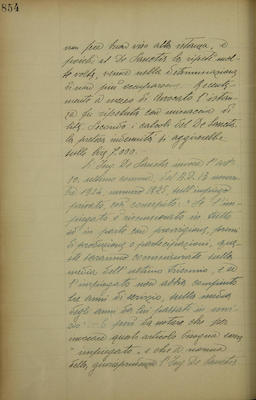 854
non può buon viso alla istanza, e
poichè il De Sanctis la ripetè mol-
te volte, venne nella determinazione
di non più occuparsene. Recente-
mente a mezzo di Avvocato l'istan-
za fu ripetuta con minaccia di
lite. Secondo i calcoli del De Sanctis
la pretesa indennità si aggirerebbe
sulle lire 7.000.-
L'Ing. De Sanctis invoca l'art.
10, ultimo comma, del R.D. 13 novem-
bre 1924, numero 1825, sull'impiego
privato, così concepito: "Se l'im-
piegato è rimunerato in tutto
od in parte con provvigioni, premi
di produzione o partecipazioni, que-
ste saranno commisurate sulla
media dell'ultimo triennio, e se
l'impiegato non abbia compiuto
tre anni di servizio, sulla media
degli anni da lui passati in servi-
zio". È però da notare che per
invocare quell'articolo bisogna essere
impiegato, e che a norma
della giurisprudenza l'Ing. De Sanctis